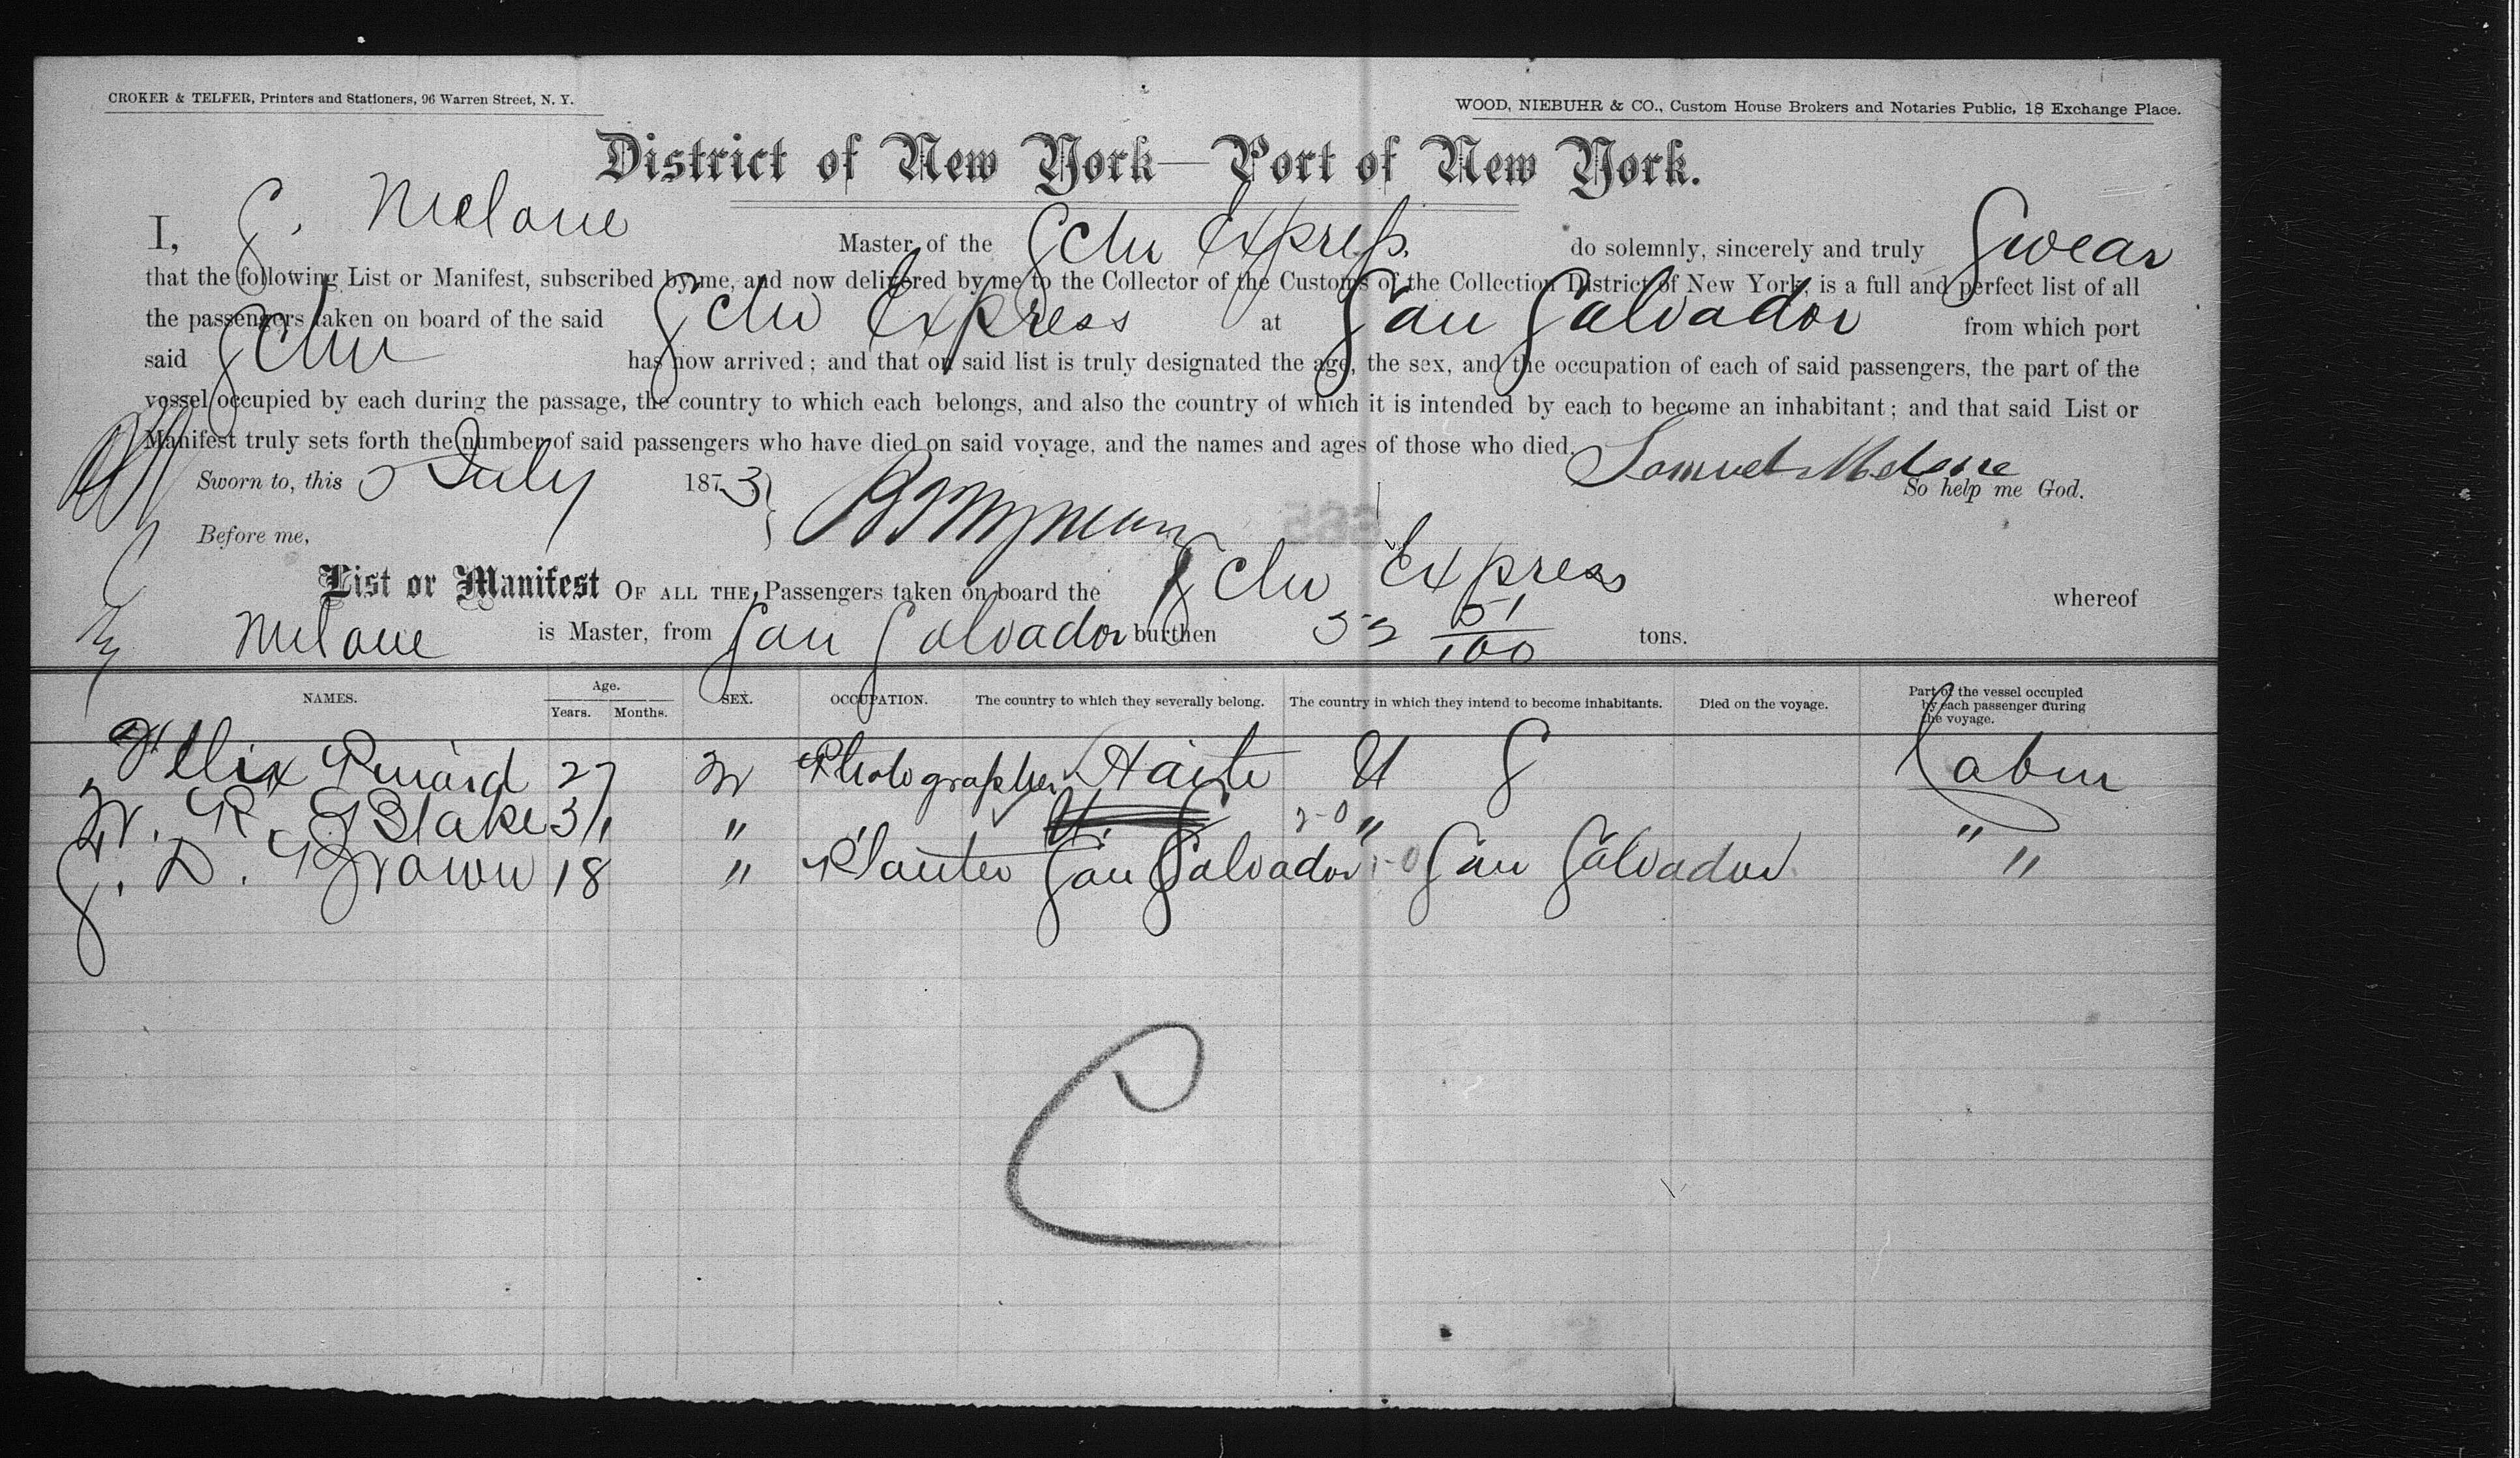 CROKER & TELFER, Printers and Stationers, 96 Warren Street, N. Y.
WOOD, NIEBUHR & CO., Custom House Brokers and Notaries Public, 18 Exchange Place.
District of New York—Port of New York.
I, S. McLane Master of the Schr Express do solemnly, sincerely and truly Swear
that the following List or Manifest, subscribed by me, and now delivered by me to the Collector of the Customs of the Collection District of New York, is a full and perfect list of all
the passengers taken on board of the said Schr Express at San Salvador from which port
said Schr has now arrived; and that on said list is truly designated the age, the sex, and the occupation of each of said passengers, the part of the
vessel occupied by each during the passage, the country to which each belongs, and also the country of which it is intended by each to become an inhabitant; and that said List or
Manifest truly sets forth the number of said passengers who have died on said voyage, and the names and ages of those who died.
Samuel McLane
Sworn to, this 5 July 1873
So help me God.
Before me,
List or Manifest OF ALL THE Passengers taken on board the Schr Express whereof
McLane is Master, from San Salvador burthen 51/100 tons.
NAMES. Age. Years. Months. SEX. OCCUPATION. The country to which they severally belong. The country in which they intend to become inhabitants. Died on the voyage. Part of the vessel occupied by each passenger during the voyage.
Felix 27 M Photographer Haite U S Cabin
W. R. Blake 31 " " U. S " "
S. D. Brown 18 " Planter San Salvador San Salvador "
C